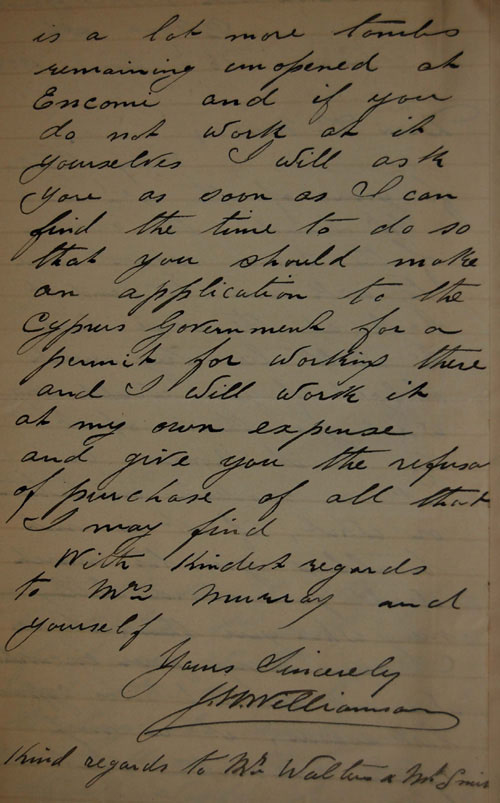 is a lot more tombs
remaining unopened at
Encomi and if you
do not work at it
yourselves I will ask
you as soon as I can
find the time to do so
that you should make
an application to the
Cyprus Government for a
permit for working there
and I will work it
at my own expense
and give you the refusa
of purchase of all that
I may find
With kindest regards
to Mrs Murray and
yourself
Yours Sincerely
J.W.Williamson
Kind regards to Mr Walters & Mr Smi